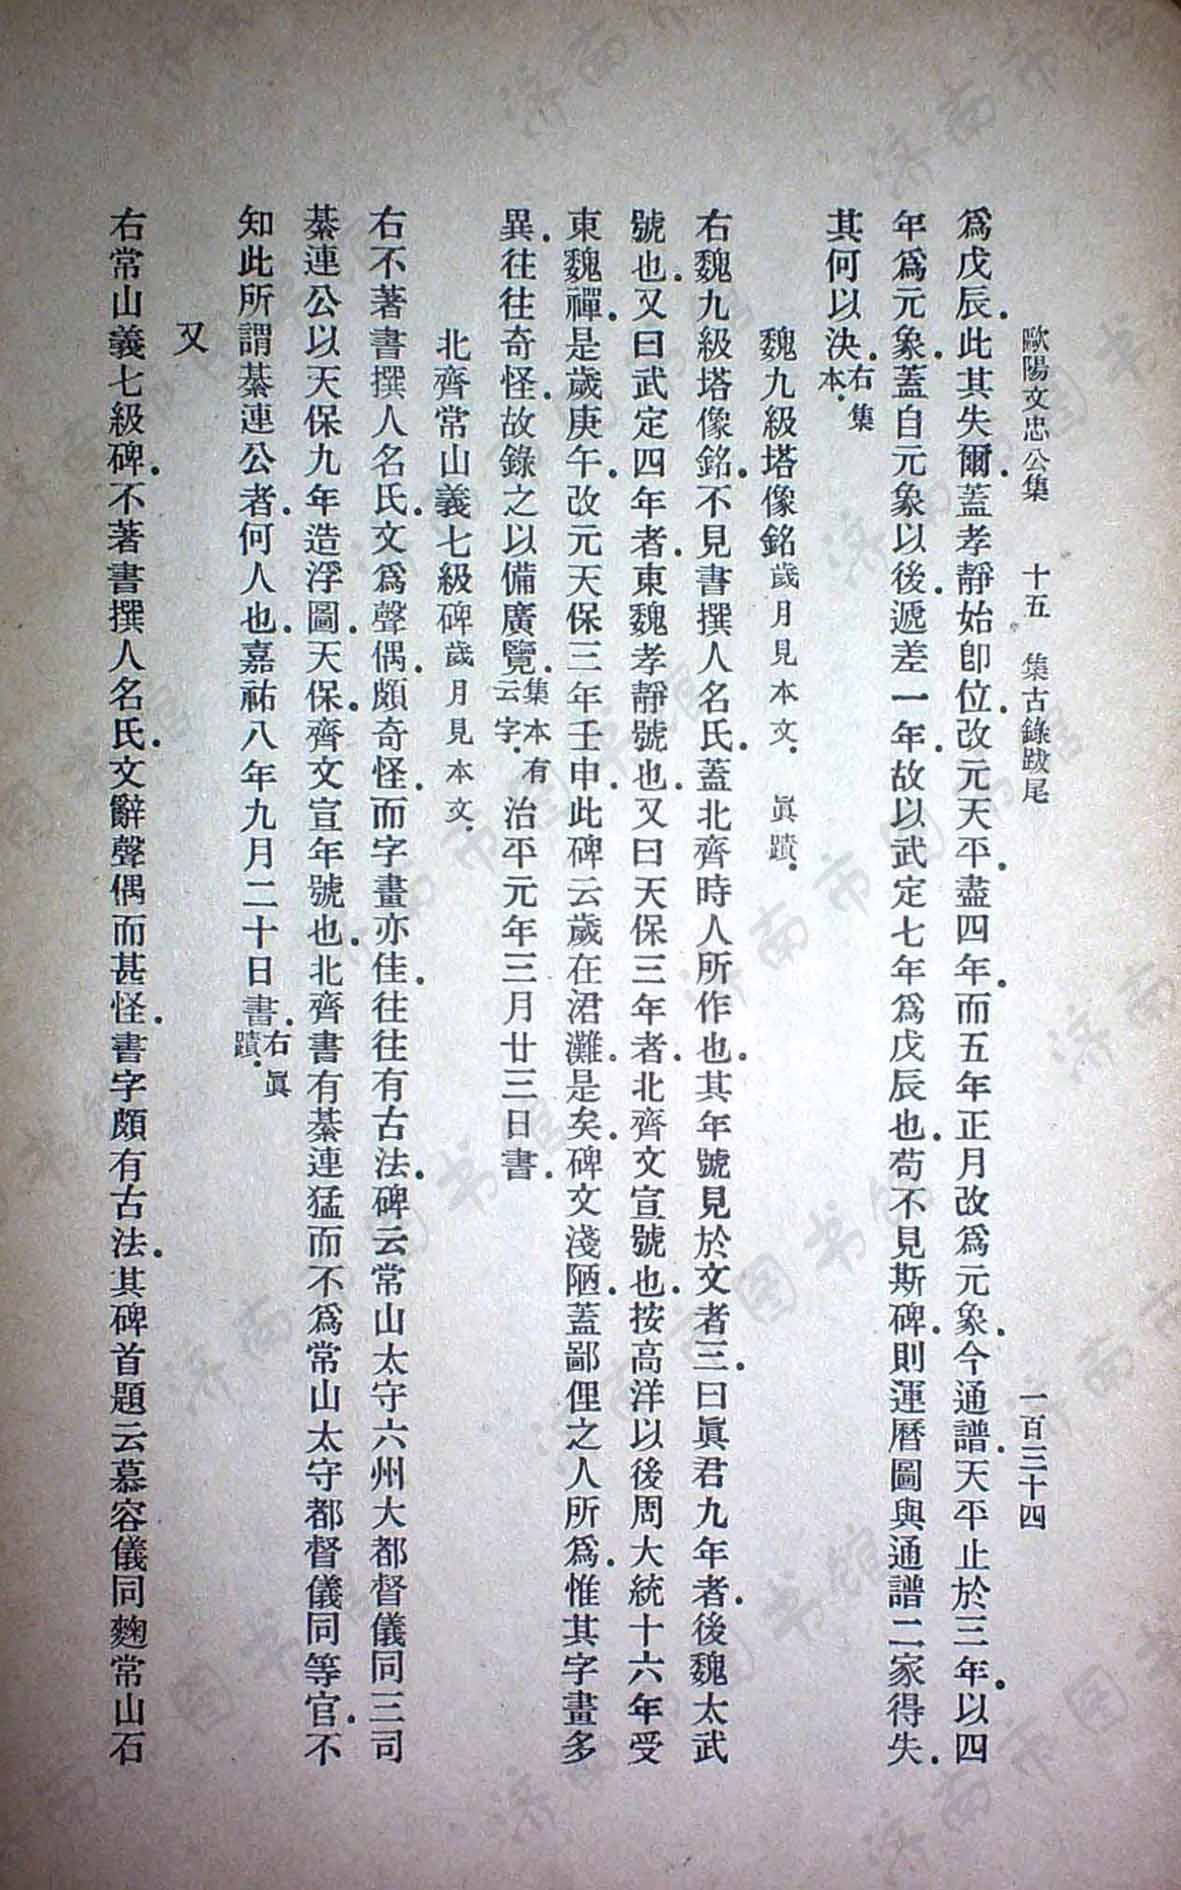 歐陽文忠公集　十五　集古錄跋尾　一百三十四
爲戊辰.此其失爾.蓋孝靜始卽位.改元天平.盡四年.而五年正月改爲元象.今通譜.天平止於三年.以四
年爲元象.蓋自元象以後.遞差一年.故以武定七年爲戊辰也.苟不見斯碑.則運曆圖與通譜二家得失.
其何以決.右集本.
魏九級塔像銘歲月見本文.　眞蹟.
右魏九級塔像銘.不見書撰人名氏.蓋北齊時人所作也.其年號見於文者三.曰眞君九年者.後魏太武
號也.又曰武定四年者.東魏孝靜號也.又曰天保三年者.北齊文宣號也.按高洋以後周大統十六年受
東魏禪.是歲庚午.改元天保.三年壬申.此碑云歲在涒灘.是矣.碑文淺陋.蓋鄙俚之人所爲.惟其字畫多
異.往往奇怪.故錄之以備廣覽.集本有云字.治平元年三月廿三日書.
北齊常山義七級碑歲月見本文.
右不著書撰人名氏.文爲聲偶.頗奇怪.而字畫亦佳.往往有古法.碑云常山太守六州大都督儀同三司
綦連公以天保九年造浮圖.天保.齊文宣年號也.北齊書有綦連猛而不爲常山太守都督儀同等官.不
知此所謂綦連公者.何人也.嘉祐八年九月二十日書.右眞蹟.
又
右常山義七級碑.不著書撰人名氏.文辭聲偶而甚怪.書字頗有古法.其碑首題云慕容儀同麴常山石